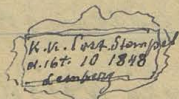 K.K. Post. Stempel
d. 16t. 10 1848
Lemberg